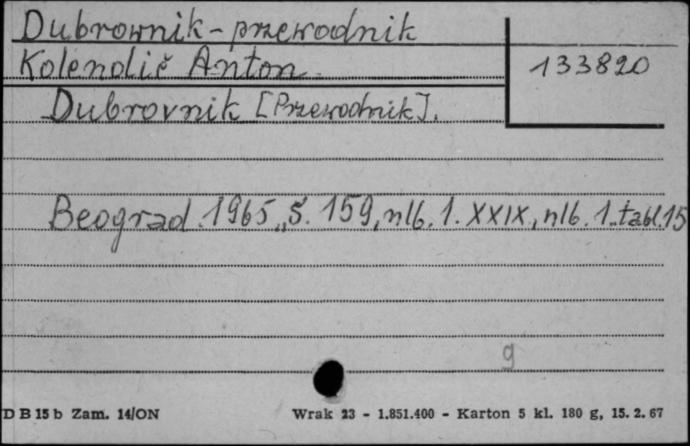 Dubrownik - przewodnik
Kolendić Anton
133820
Dubrovnik [Przewodnik].
Beograd 1965, S. 159, nlb. 1. XXIX, nlb. 1. tabl. 15
g
D B 15 b Zam. 14/ON Wrak 23 - 1.851.400 - Karton 5 kl. 180 g, 15. 2. 67